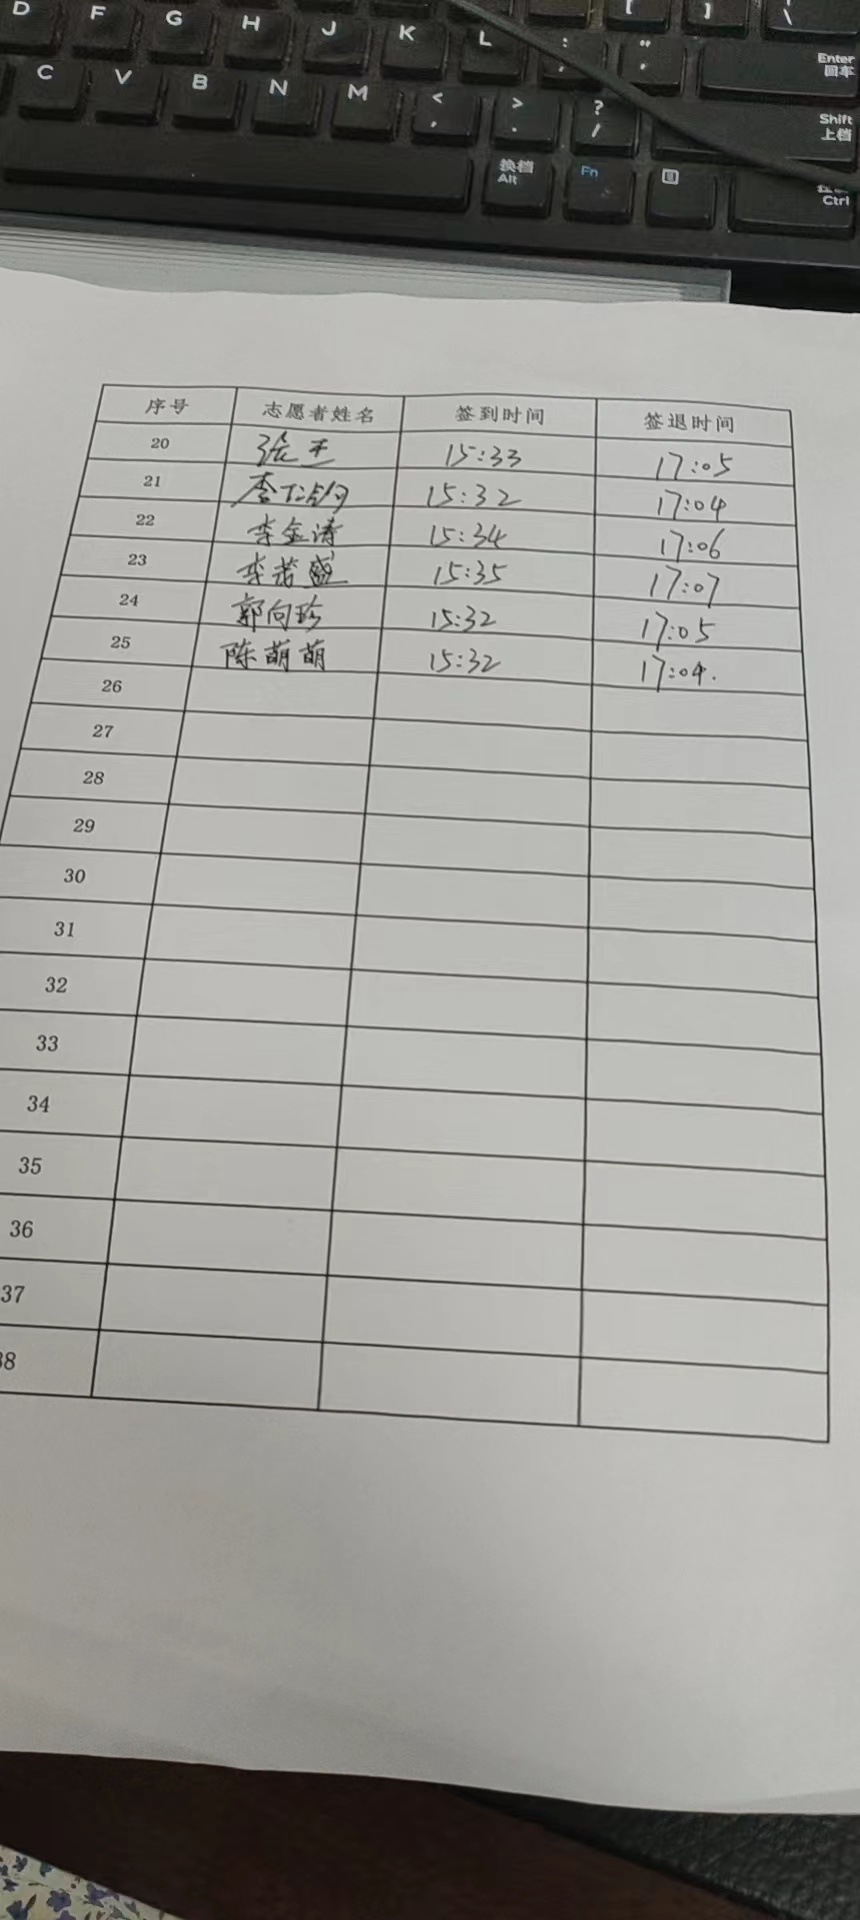 [ ] \
D F G H J K L : ; " ' Enter 回车
C V B N M < , > . ? / Shift 上档
换档 Alt Fn Ctrl
序号 志愿者姓名 签到时间 签退时间
20 张王 15:33 17:05
21 15:32 17:04
22 李金涛 15:34 17:06
23 李若盛 15:35 17:07
24 郭向珍 15:32 17:05
25 陈萌萌 15:32 17:04.
26
27
28
29
30
31
32
33
34
35
36
37
38